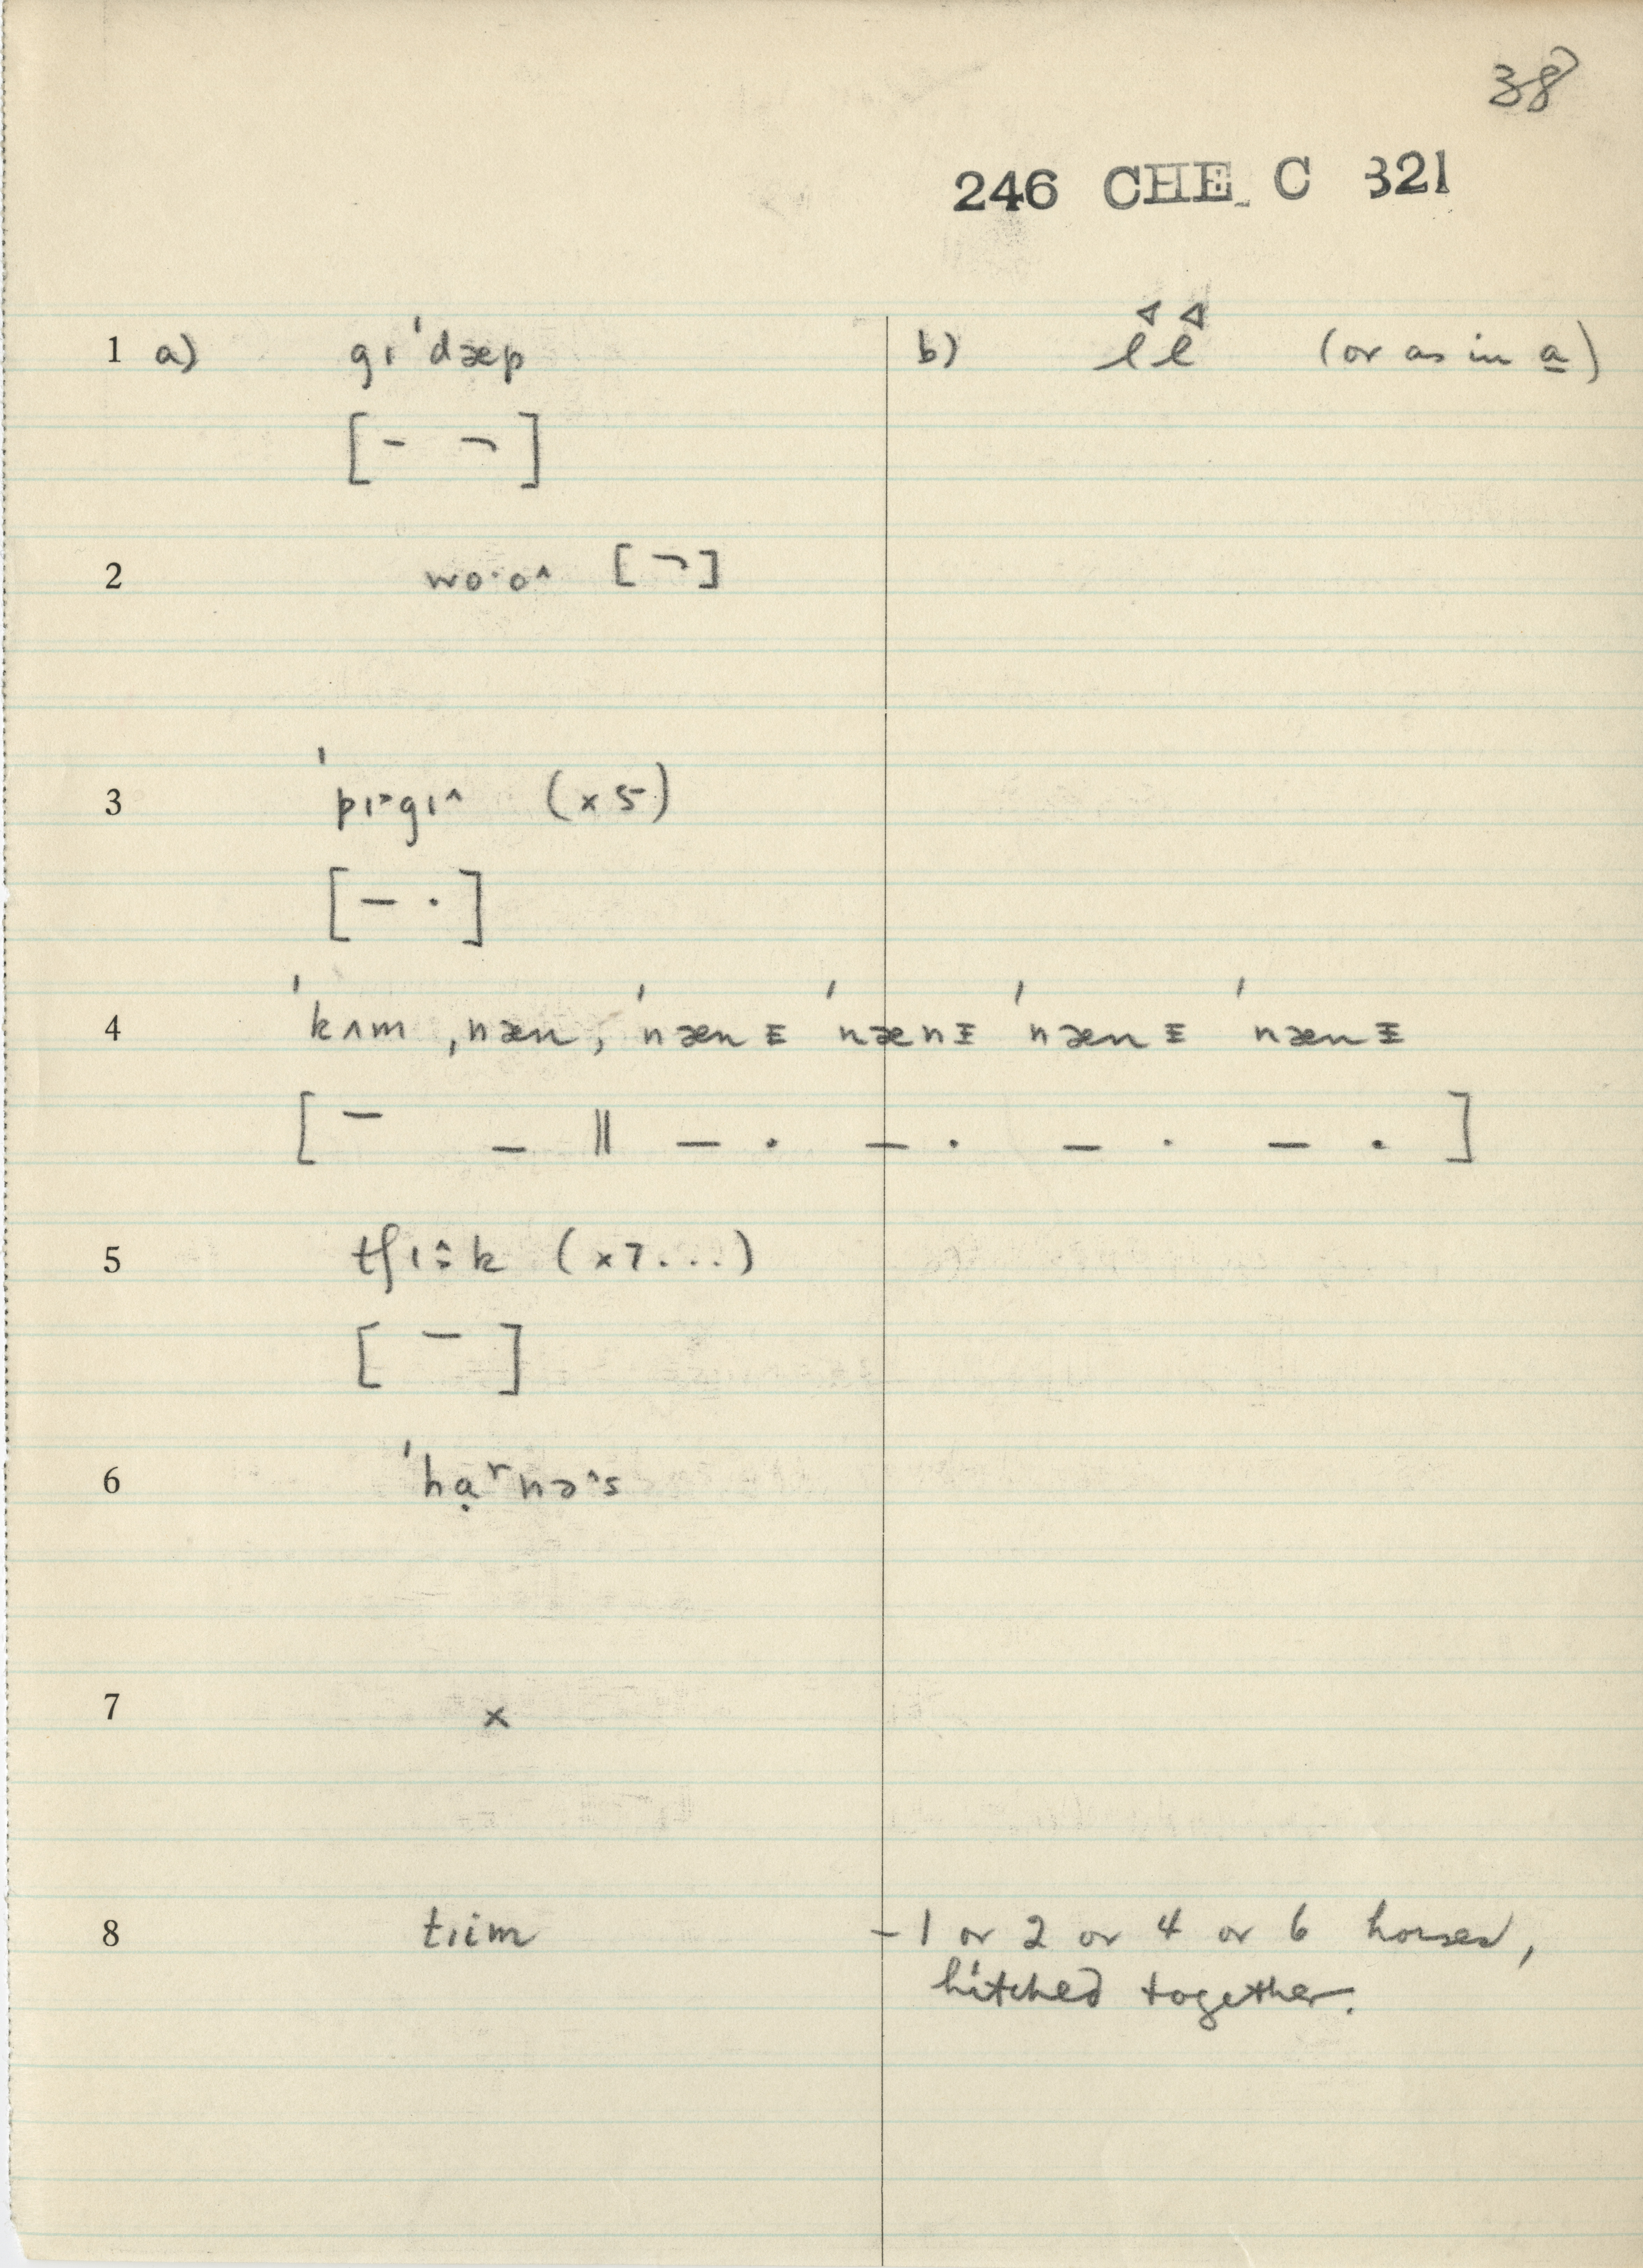 38
246 CHE C 321
1 a) gɪˈdæp b) ll (or as in a)
[- ¬]
2 wo·o^ [¬]
3 ˈpɪ˃gɪ^ (x 5)
[– ·]
4 ˈkʌm ˌnæn, ˈnænɪ ˈnænɪ ˈnænɪ ˈnænɪ
[ – _ || – · – · – · – · ]
5 tʃɪ:k (x7...)
[ – ]
6 ˈhɑ̣ʳnə^s
7 x
8 tɪim - 1 or 2 or 4 or 6 horses,
hitched together.